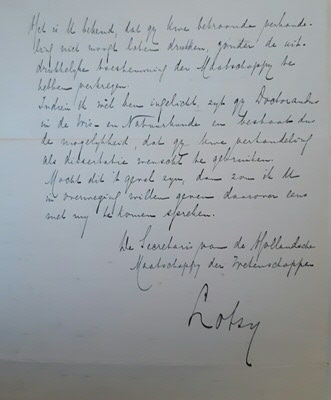 Het is U bekend, dat gy Uwe bekroonde verhande-
ling niet moogt laten drukken, zonder de uit-
drukkelyke toestemming der Maatschappy te
hebben verkregen.
Indien ik wel ben ingelicht, zyt gy Doctorandus
in de Wis- en Natuurkunde en bestaat dus
de mogelykheid, dat gy Uwe verhandeling
als dissertatie wenscht te gebruiken.
Mocht dit 't geval zyn, dan zou ik U
in overweging willen geven daarover eens
met my te komen spreken.
De Secretaris van de Hollandsche
Maatschappy der Wetenschappen
Lotsy